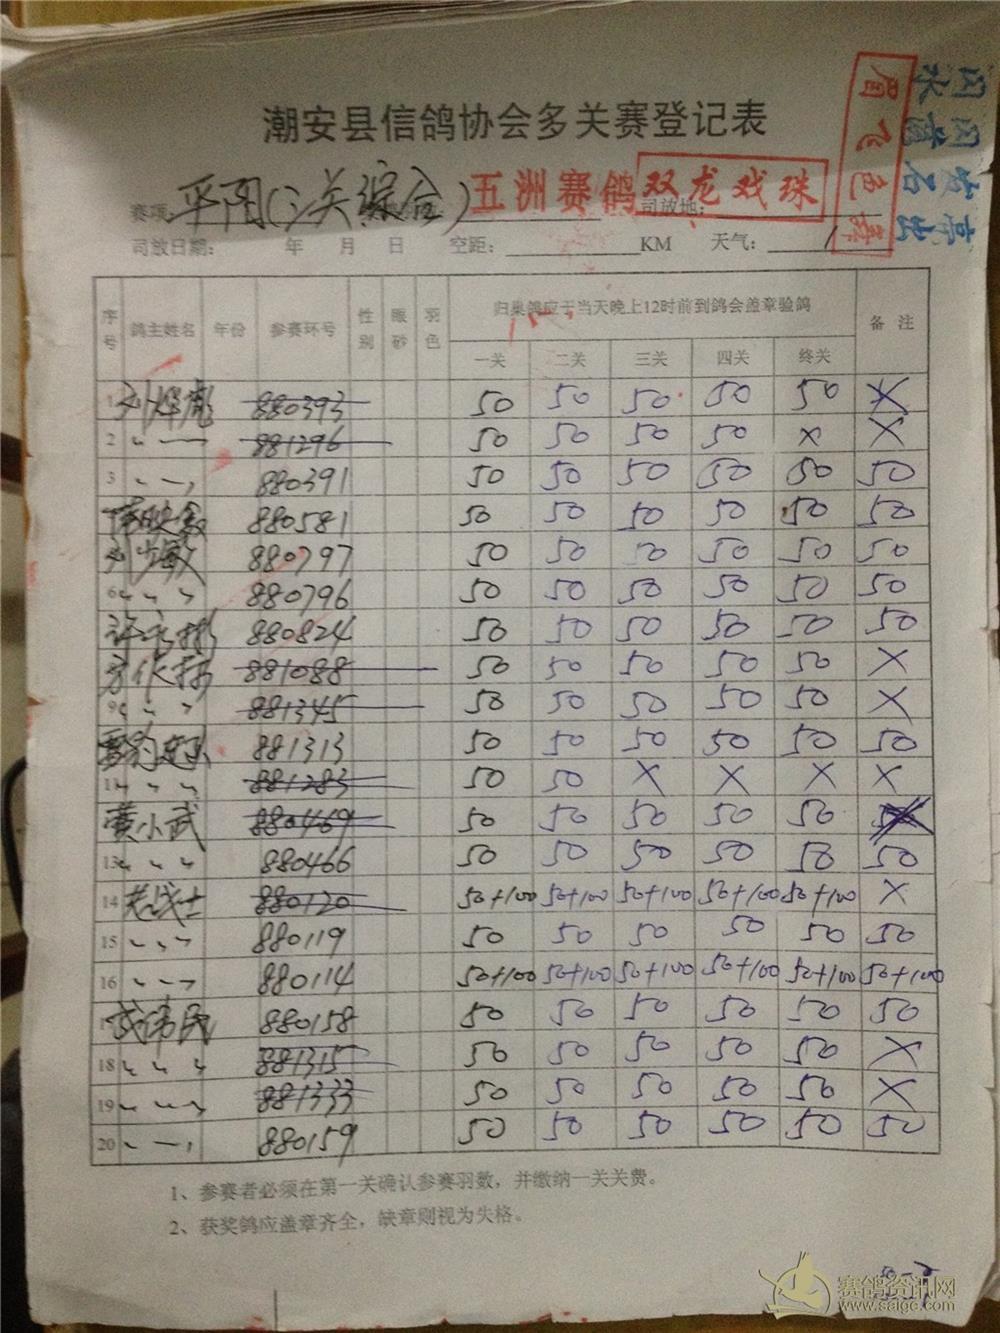 潮安县信鸽协会多关赛登记表
赛项 平阳(三关综合) 五洲赛鸽 双龙戏珠 司放地:
眉飞色舞
司放日期: 年 月 日 空距: KM 天气:
序号 鸽主姓名 年份 参赛环号 性别 眼砂 羽色 归巢鸽应于当天晚上12时前到鸽会盖章验鸽 备 注
一关 二关 三关 四关 终关
1 880393 50 50 50 50 50 X
2 〃 — 881296 50 50 50 50 X X
3 〃 — 880391 50 50 50 50 50 50
880581 50 50 50 50 50 50
880797 50 50 50 50 50 50
6 〃 〃 〃 880796 50 50 50 50 50 50
880824 50 50 50 50 50 50
881088 50 50 50 50 50 X
9 〃 〃 〃 881345 50 50 50 50 50 X
881313 50 50 50 50 50 50
11 〃 〃 〃 881283 50 50 X X X X
黄小武 880469 50 50 50 50 50 50
13 〃 〃 〃 880466 50 50 50 50 50 50
14 老战士 880120 50+100 50+100 50+100 50+100 50+100 X
15 〃 〃 〃 880119 50 50 50 50 50 50
16 〃 — 〃 880114 50+100 50+100 50+100 50+100 50+100 50+100
成伟民 880158 50 50 50 50 50 50
18 〃 〃 〃 881315 50 50 50 50 50 X
19 〃 〃 〃 881333 50 50 50 50 50 X
20 〃 — 〃 880159 50 50 50 50 50 50
1、参赛者必须在第一关确认参赛羽数，并缴纳一关关费。
2、获奖鸽应盖章齐全，缺章则视为失格。
赛鸽资讯网
www.saige.com